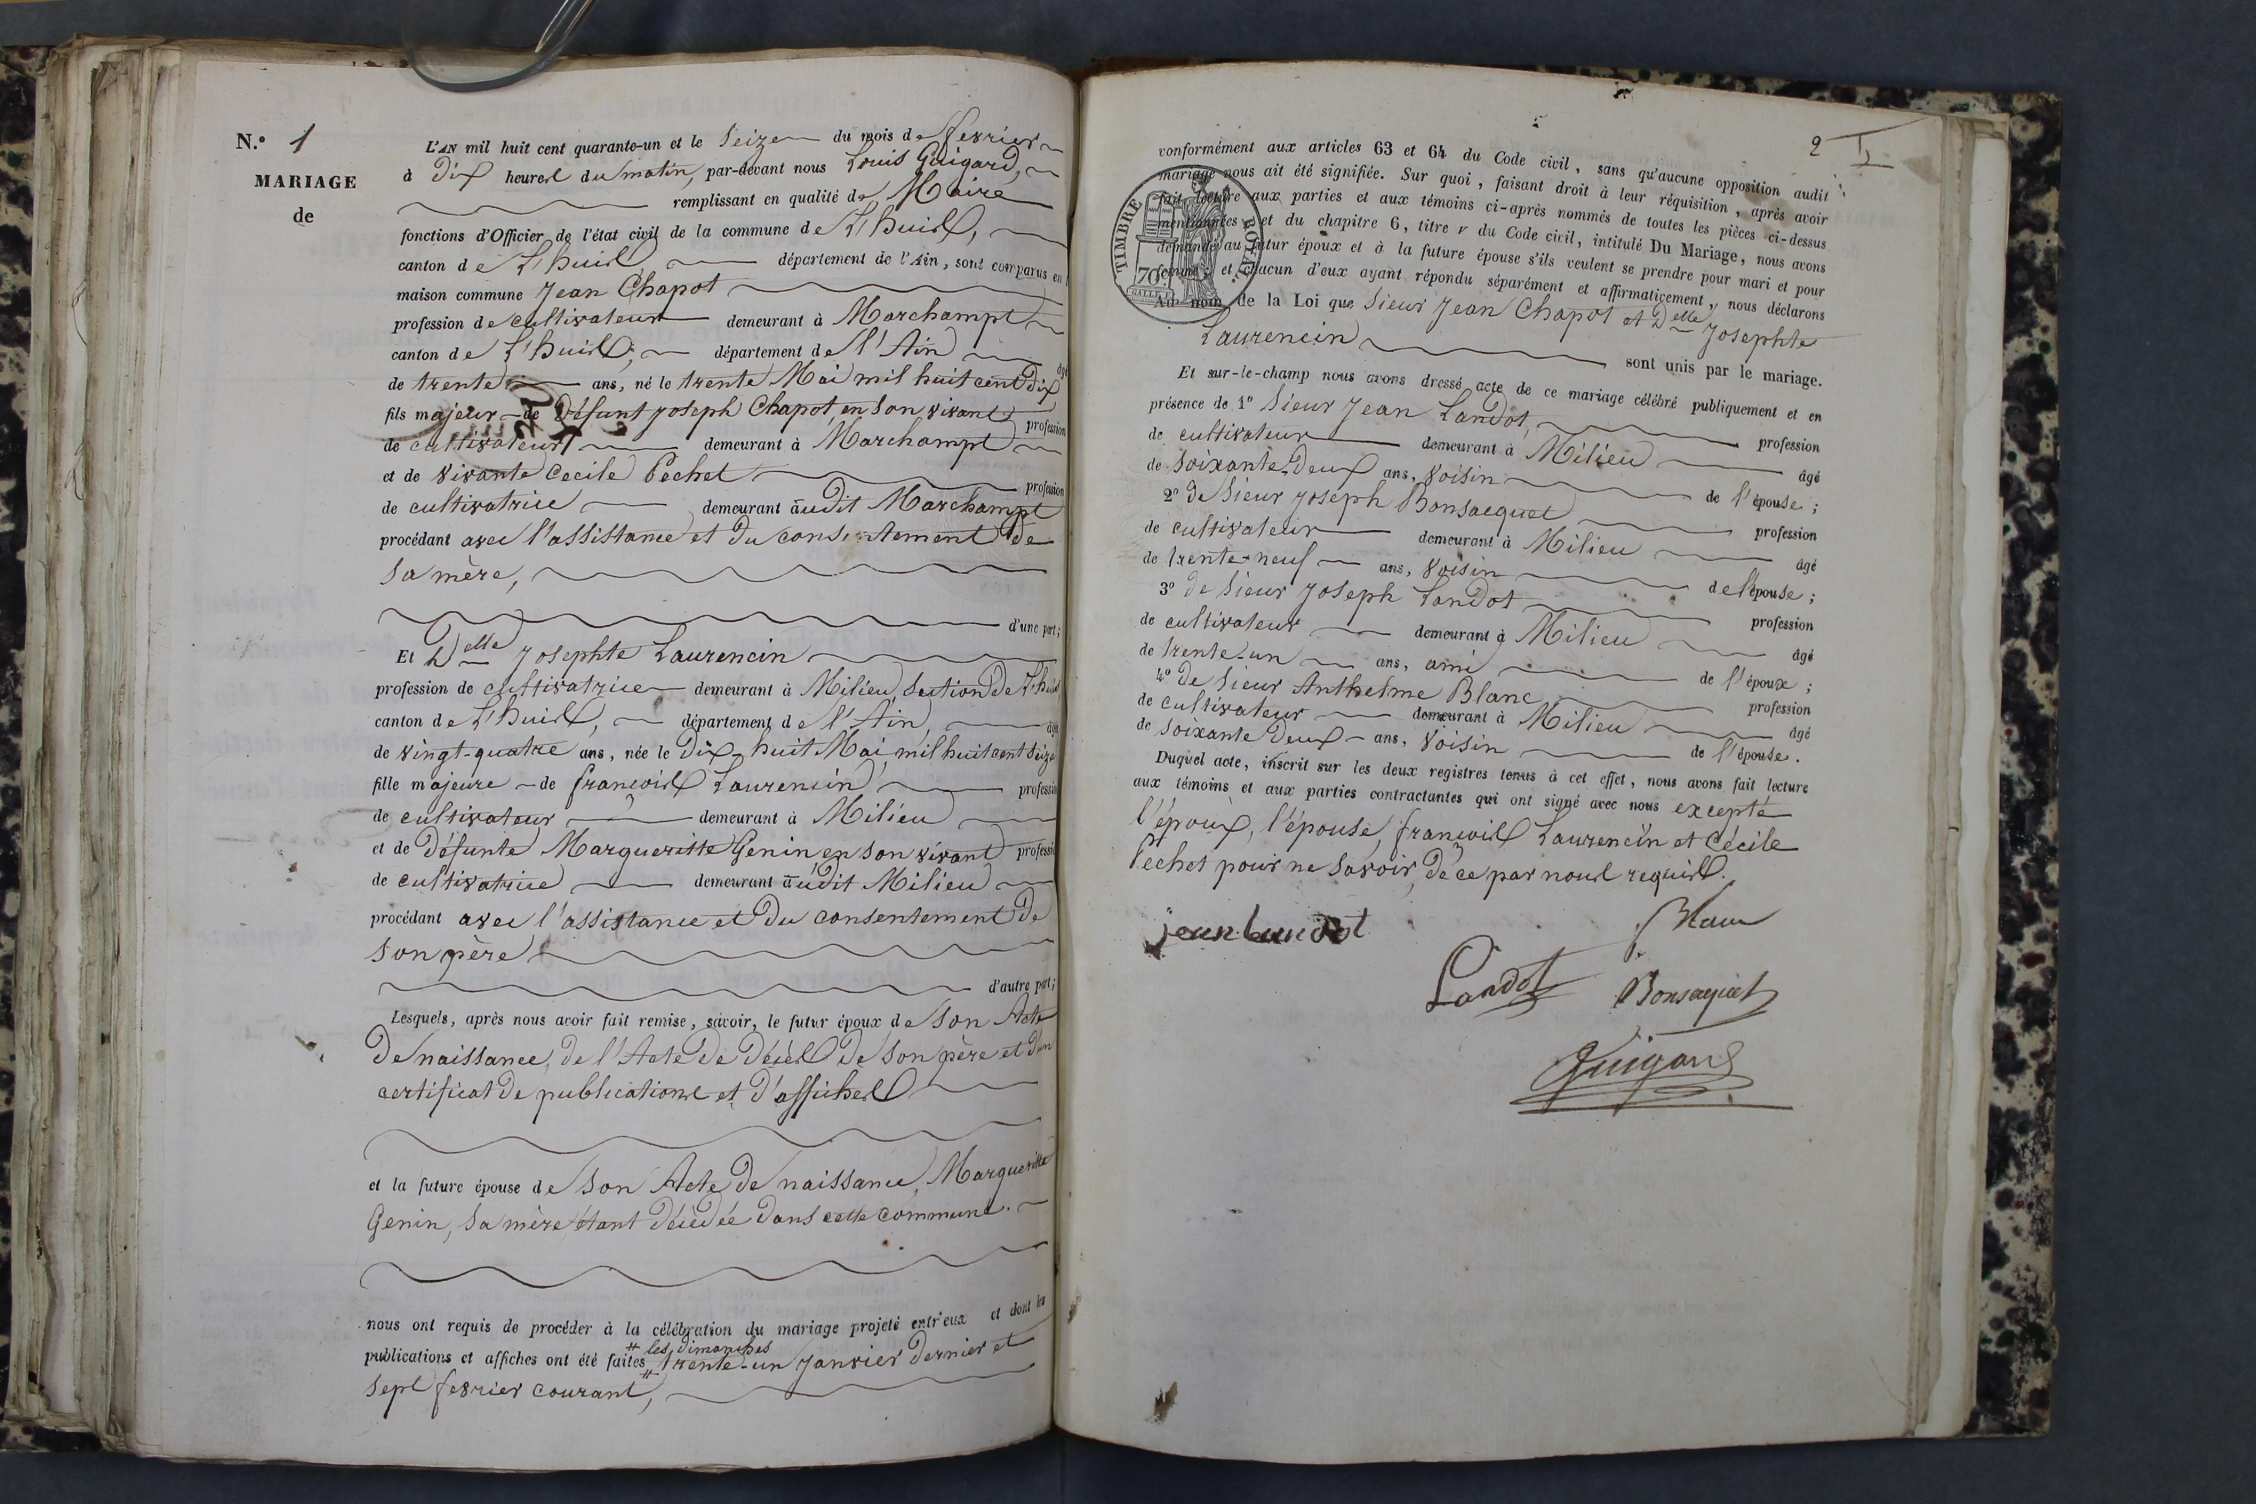 N.º 1
MARIAGE
de
L'AN mil huit cent quarante-un et le seize du mois de fevrier
à Dix heures du matin, par-devant nous Louis Guigard,
remplissant en qualité de Maire
fonctions d'Officier de l'état civil de la commune de L'huis,
canton de L'huis département de l'Ain, sont comparus en
maison commune Jean Chapot
profession de cultivateur demeurant à Marchampt
canton de L'huis, département de l'Ain âgé
de trente ans, né le trente Mai mil huit cent dix
fils majeur de Défunt Joseph Chapot en son vivant profession
de cultivateur demeurant à Marchampt
et de vivante Cecile Pechet profession
de cultivatrice demeurant audit Marchampt
procédant avec l'assistance et du consentement de
sa mère,
d'une part;
Et Delle Josephte Laurencin
profession de cultivatrice demeurant à Milieu, section de L'huis
canton de L'huis, département de l'Ain, âgé
de vingt-quatre ans, née le Dix-huit Mai mil huit cent seize
fille majeure de françois Laurencin profession
de cultivateur demeurant à Milieu
et de Défunte Margueritte Genin en son vivant profession
de cultivatrice demeurant audit Milieu
procédant avec l'assistance et du consentement de
son père
d'autre part;
Lesquels, après nous avoir fait remise, savoir, le futur époux de son Acte
de naissance, de l'Acte de décès de son père et d'un
certificat de publications et d'affiches
et la future épouse de son Acte de naissance, Margueritte
Genin, sa mère étant décédée dans cette commune.
nous ont requis de procéder à la célébration du mariage projeté entr'eux et dont les
# les dimanches
publications et affiches ont été faites # trente-un janvier dernier et
sept fevrier courant,
2
conformément aux articles 63 et 64 du Code civil, sans qu'aucune opposition audit
mariage nous ait été signifiée. Sur quoi, faisant droit à leur réquisition, après avoir
fait lecture aux parties et aux témoins ci-après nommés de toutes les pièces ci-dessus
mentionnées et du chapitre 6, titre v du Code civil, intitulé Du Mariage, nous avons
demandé au futur époux et à la future épouse s'ils veulent se prendre pour mari et pour
femme; et chacun d'eux ayant répondu séparément et affirmativement, nous déclarons
Au nom de la Loi que sieur Jean Chapot et Delle Josephte
Laurencin sont unis par le mariage.
TIMBRE ROYAL
70
Et sur-le-champ nous avons dressé acte de ce mariage célébré publiquement et en
présence de 1º sieur Jean Landot, profession
de cultivateur demeurant à Milieu âgé
de soixante-Deux ans, voisin de l'épouse;
2º de sieur Joseph Bonsacquet profession
de cultivateur demeurant à Milieu âgé
de trente-neuf ans, voisin de l'épouse;
3º de sieur Joseph Landot profession
de cultivateur demeurant à Milieu âgé
de trente-un ans, ami de l'époux;
4º de sieur Anthelme Blanc profession
de cultivateur demeurant à Milieu âgé
de soixante Deux ans, voisin de l'épouse.
Duquel acte, inscrit sur les deux registres tenus à cet effet, nous avons fait lecture
aux témoins et aux parties contractantes qui ont signé avec nous excepté
l'époux, l'épouse, françois Laurencin et Cécile
Pechet pour ne savoir, de ce par nous requis.
jean landot
Blanc
Landot
Bonsacquet
Guigard